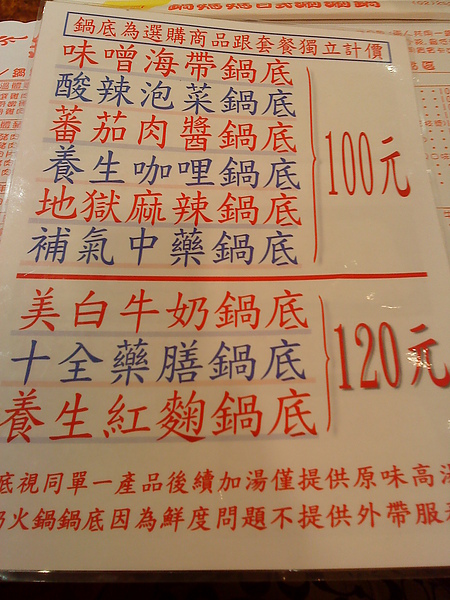 鍋底為選購商品跟套餐獨立計價
味噌海帶鍋底
酸辣泡菜鍋底
蕃茄肉醬鍋底
養生咖哩鍋底
地獄麻辣鍋底
補氣中藥鍋底
100元
美白牛奶鍋底
十全藥膳鍋底
養生紅麴鍋底
120元
底視同單一產品後續加湯僅提供原味高湯
奶火鍋鍋底因為鮮度問題不提供外帶服務